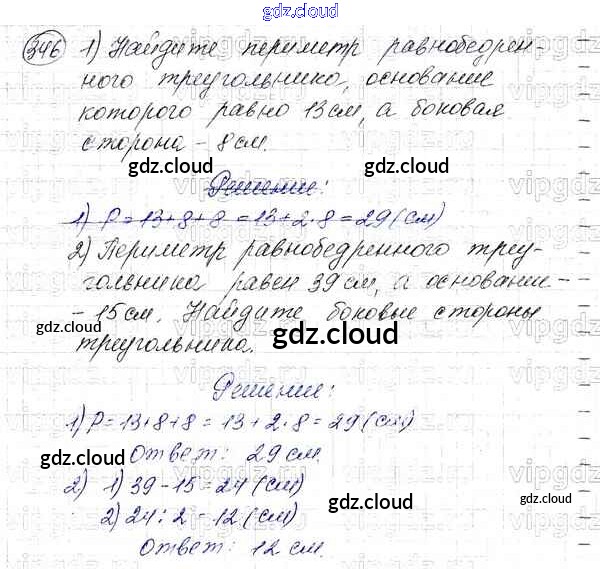 gdz.cloud
346 1) Найдите периметр равнобедрен-
ного треугольника, основание
которого равно 13 см, а боковая
сторона - 8 см.
gdz.cloud gdz.cloud
Решение:
1) P = 13+8+8 = 13+2·8 = 29 (см)
gdz.cloud gdz.cloud
2) Периметр равнобедренного треу-
гольника равен 39 см, а основание -
- 15 см. Найдите боковые стороны
gdz.cloud gdz.cloud
треугольника.
Решение:
1) P = 13+8+8 = 13+2·8 = 29 (см)
Ответ: 29 см.
gdz.cloud gdz.cloud
2) 1) 39 - 15 = 24 (см)
2) 24 : 2 = 12 (см)
gdz.cloud gdz.cloud
Ответ: 12 см.